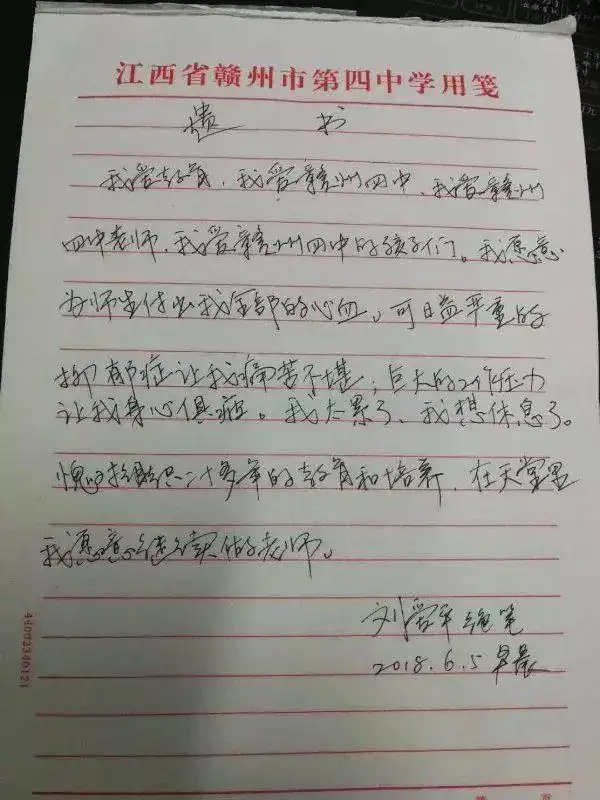 江西省赣州市第四中学用笺
遗 书
我爱教育，我爱赣州四中，我爱赣州
四中老师，我爱赣州四中的孩子们。我愿意
为师生付出我全部的心血。可日益严重的
抑郁症让我痛苦不堪；巨大的工作压力
让我身心俱疲。我太累了，我想休息了。
愧对组织二十多年的教育和培养，在天堂里
我愿意继续做老师。
刘爱平 绝笔
2018.6.5 早晨
44092340121
第 页